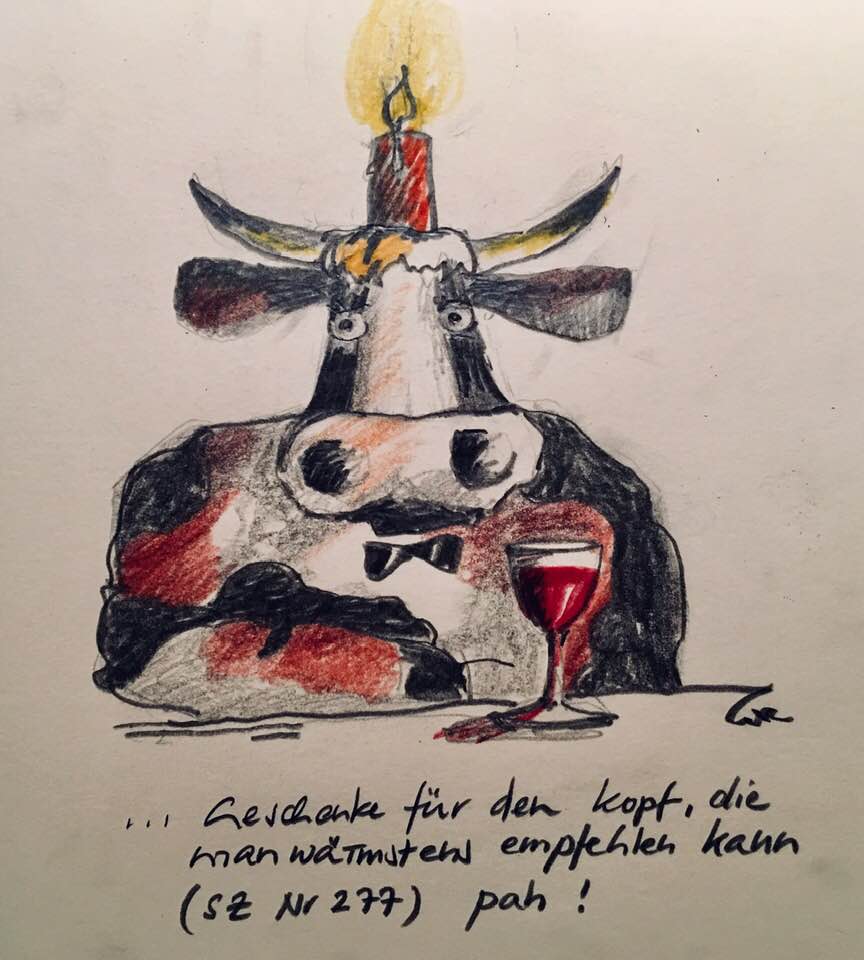 ... Geschenke für den Kopf, die
man wärmstens empfehlen kann
(SZ Nr 277) pah !